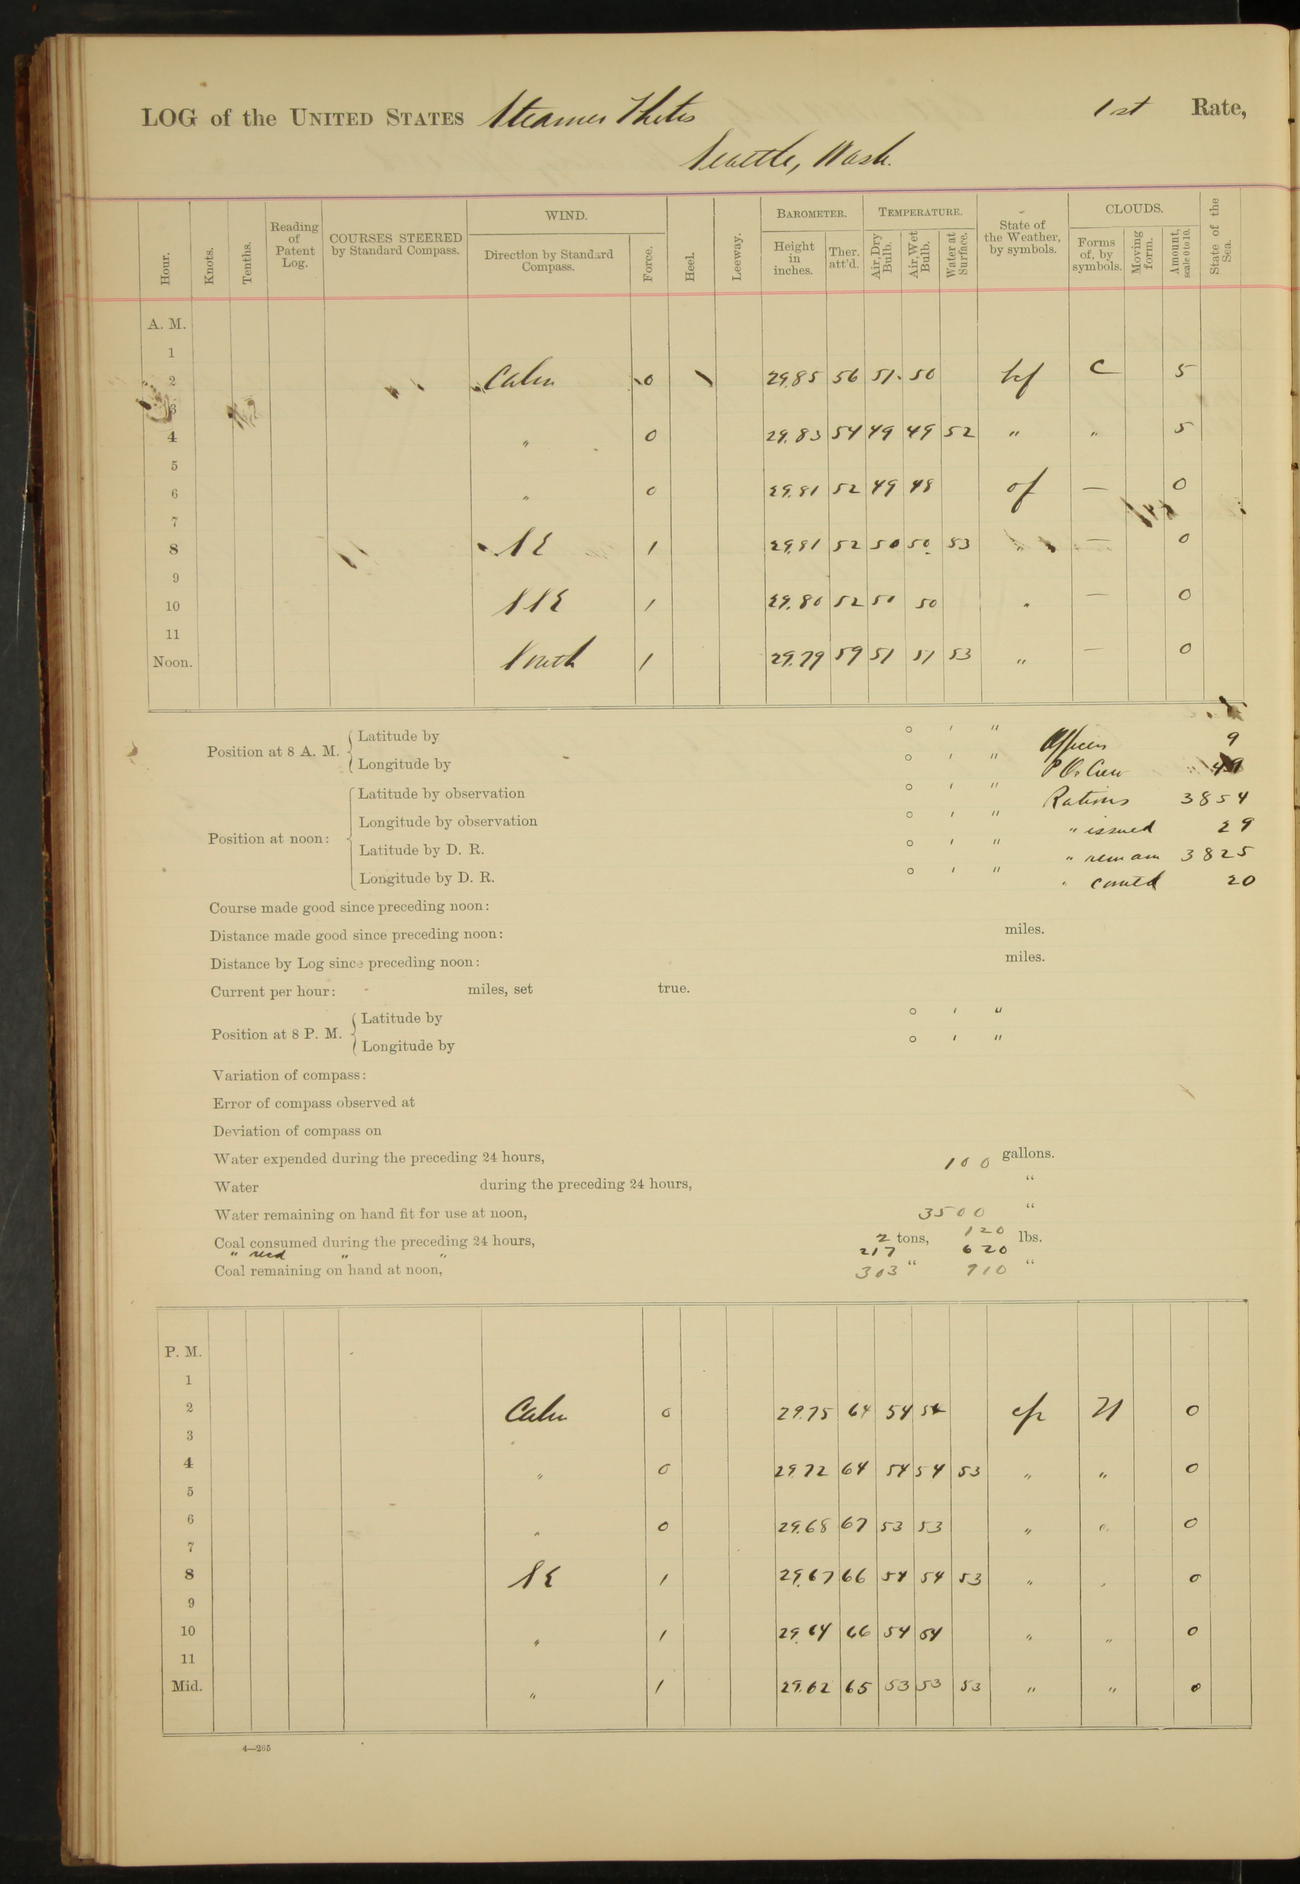 LOG of the UNITED STATES Steamer Thetis 1st Rate,
Seattle, Wash.
Hour. Knots. Tenths. Reading of Patent Log. COURSES STEERED by Standard Compass. WIND. Direction by Standard Compass. Force. Heel. Leeway. BAROMETER. Height in inches. Ther. att'd. TEMPERATURE. Air, Dry Bulb. Air, Wet Bulb. Water at Surface. State of the Weather, by symbols. CLOUDS. Forms of, by symbols. Moving form. Amount, scale 0 to 10. State of the Sea.
A. M.
1
2 Calm 0 29.85 56 51 50 bf C 5
3
4 " 0 29.83 54 49 49 52 " " 5
5
6 " 0 29.81 52 49 48 of — 0
7
8 SE 1 29.81 52 50 50 53 " — 0
9
10 SSE 1 29.80 52 50 50 " — 0
11
Noon. South 1 29.79 59 51 51 53 " — 0
Position at 8 A. M. { Latitude by ° ' " Officers 9
Longitude by ° ' " P.O. Crew
Position at noon: { Latitude by observation ° ' " Rations 3854
Longitude by observation ° ' " " issued 29
Latitude by D. R. ° ' " " remain 3825
Longitude by D. R. ° ' " " comtd 20
Course made good since preceding noon:
Distance made good since preceding noon: miles.
Distance by Log since preceding noon: miles.
Current per hour: miles, set true.
Position at 8 P. M. { Latitude by ° ' "
Longitude by ° ' "
Variation of compass:
Error of compass observed at
Deviation of compass on
Water expended during the preceding 24 hours, 100 gallons.
Water during the preceding 24 hours, "
Water remaining on hand fit for use at noon, 3500 "
Coal consumed during the preceding 24 hours, 2 tons, 120 lbs.
" recd " " 217 620
Coal remaining on hand at noon, 303 " 910 "
P. M.
1
2 Calm 0 29.75 64 54 54 N 0
3
4 " 0 29.72 64 54 54 53 " " 0
5
6 " 0 29.68 67 53 53 " " 0
7
8 SE 1 29.67 66 54 54 53 " " 0
9
10 " 1 29.64 66 54 54 " " 0
11
Mid. " 1 29.62 65 53 53 53 " " 0
4—265